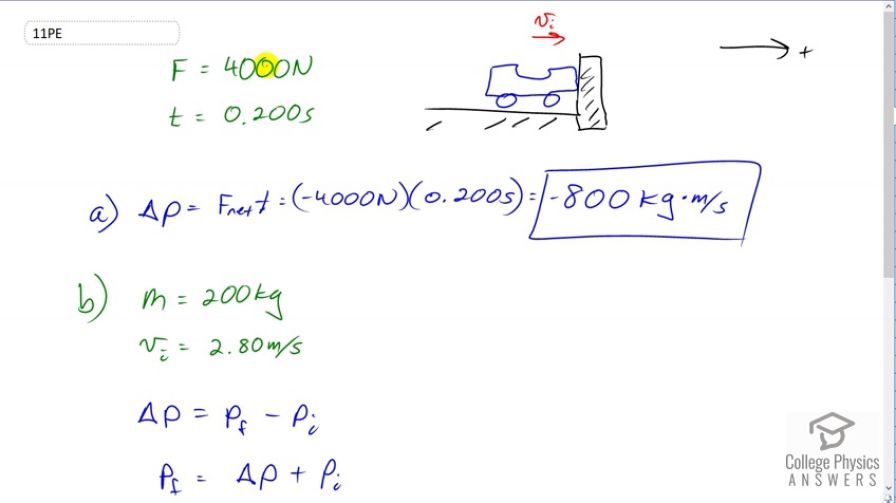 11PE
v_i
+
F = 4000N
t = 0.200s
a) Δp = F_net t = (-4000N)(0.200s) = -800 kg·m/s
b) m = 200kg
v_i = 2.80 m/s
Δp = p_f - p_i
p_f = Δp + p_i
College Physics
ANSWERS